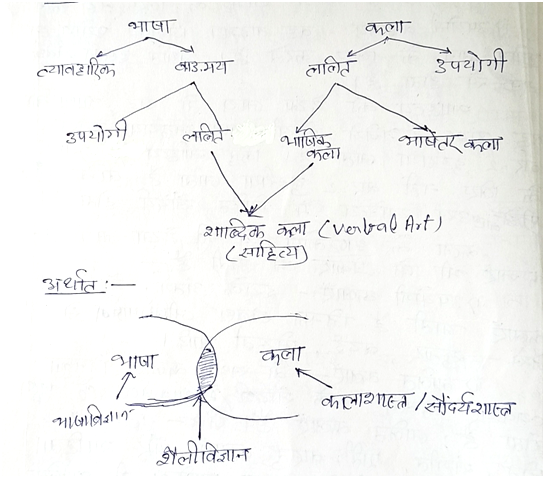 भाषा कला
व्यावहारिक वाङ्मय ललित उपयोगी
उपयोगी ललित भाषिक कला भाषेतर कला
शाब्दिक कला (Verbal Art)
(साहित्य)
अर्थात :—
भाषा कला
भाषाविज्ञान कलाशास्त्र/सौंदर्यशास्त्र
शैलीविज्ञान